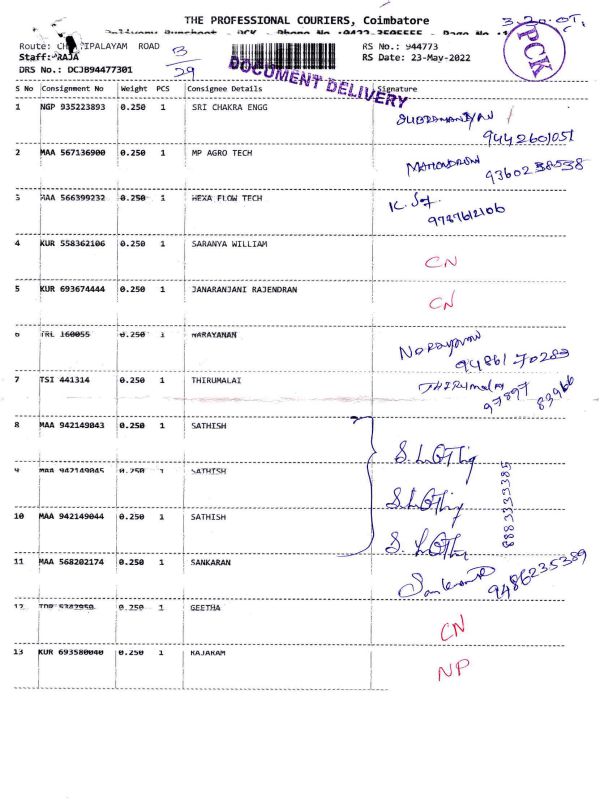 THE PROFESSIONAL COURIERS, Coimbatore
3.20.
Delivery Runsheet - PCK - Phone No :0422-3505555 - Page No :
PCK
Route: ROAD
B/29
RS No.: 944773
Staff: RAJA
RS Date: 23-May-2022
DRS No.: DCJB94477301
DOCUMENT DELIVERY
S No Consignment No Weight PCS Consignee Details Signature
1 NGP 935223893 0.250 1 SRI CHAKRA ENGG
9442601051
2 MAA 567136900 0.250 1 MP AGRO TECH
9360238538
3 MAA 566399232 0.250 1 HEXA FLOW TECH
9787612106
4 KUR 558362106 0.250 1 SARANYA WILLIAM CN
5 KUR 693674444 0.250 1 JANARANJANI RAJENDRAN CN
6 TRL 160055 0.250 1 NARAYANAN
94861 70283
7 TSI 441314 0.250 1 THIRUMALAI THIRUMALAI
97897 83966
8 MAA 942149043 0.250 1 SATHISH
9 MAA 942149045 0.250 1 SATHISH
8883333385
10 MAA 942149044 0.250 1 SATHISH
11 MAA 568202174 0.250 1 SANKARAN
9486235389
12 0.250 1 GEETHA CN
13 KUR 693580040 0.250 1 RAJARAM NP